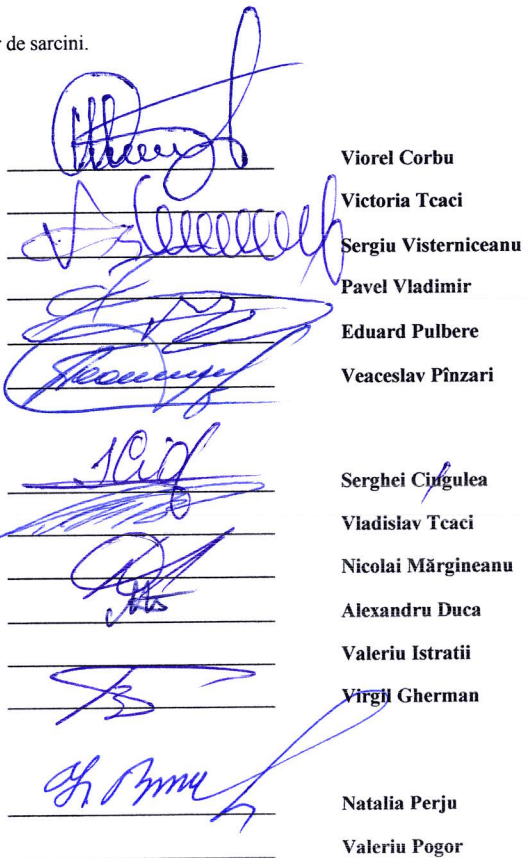 de sarcini.
Viorel Corbu
Victoria Tcaci
Sergiu Visterniceanu
Pavel Vladimir
Eduard Pulbere
Veaceslav Pînzari
Serghei Cingulea
Vladislav Tcaci
Nicolai Mărgineanu
Alexandru Duca
Valeriu Istratii
Virgil Gherman
Natalia Perju
Valeriu Pogor